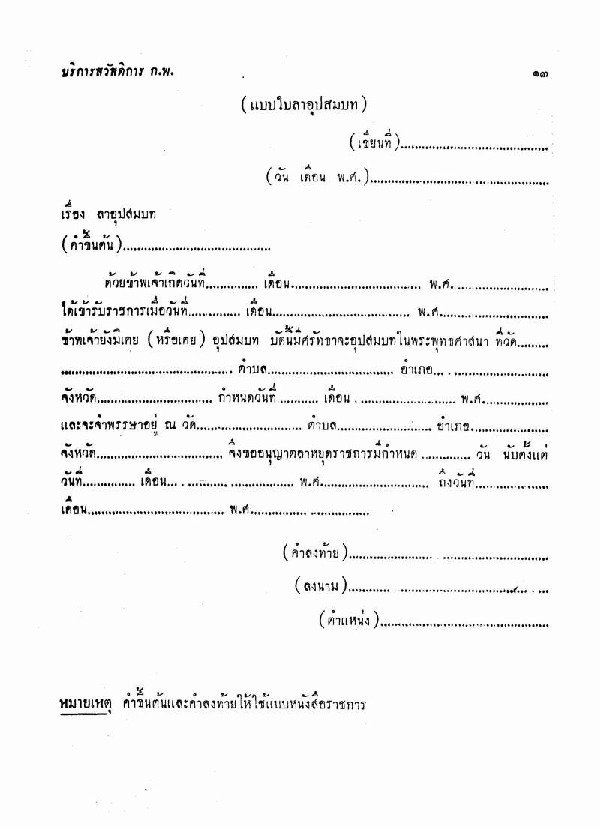 บริการสวัสดิการ ก.พ. ๑๓
(แบบใบลาอุปสมบท)
(เขียนที่)................................
(วัน เดือน พ.ศ.)................................
เรื่อง ลาอุปสมบท
(คำขึ้นต้น)................................
ด้วยข้าพเจ้าเกิดวันที่............ เดือน............................ พ.ศ. ....................
ได้เข้ารับราชการเมื่อวันที่............ เดือน............................ พ.ศ.....................
ข้าพเจ้ายังมิเคย (หรือเคย) อุปสมบท บัดนี้มีศรัทธาจะอุปสมบทในพระพุทธศาสนา ที่วัด........
................................ ตำบล............................ อำเภอ........................
จังหวัด........................ กำหนดวันที่.......... เดือน ........................ พ.ศ...............
และจะจำพรรษาอยู่ ณ วัด........................ ตำบล........................ อำเภอ....................
จังหวัด............................ จึงขออนุญาตลาหยุดราชการมีกำหนด ............ วัน นับตั้งแต่
วันที่............ เดือน............................ พ.ศ......................... ถึงวันที่................
เดือน............................ พ.ศ.............................
(คำลงท้าย)........................................
(ลงนาม)........................................
(ตำแหน่ง)........................................
หมายเหตุ คำขึ้นต้นและคำลงท้ายให้ใช้แบบหนังสือราชการ